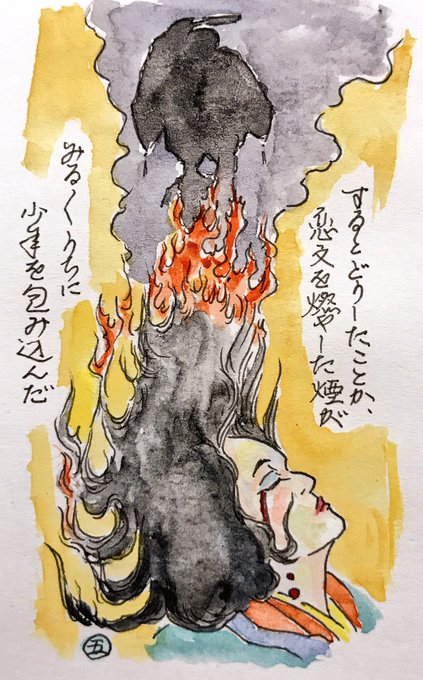 するとどうしたことか、
恋文を燃やした煙が
みるくうちに
少年を包み込んだ
五